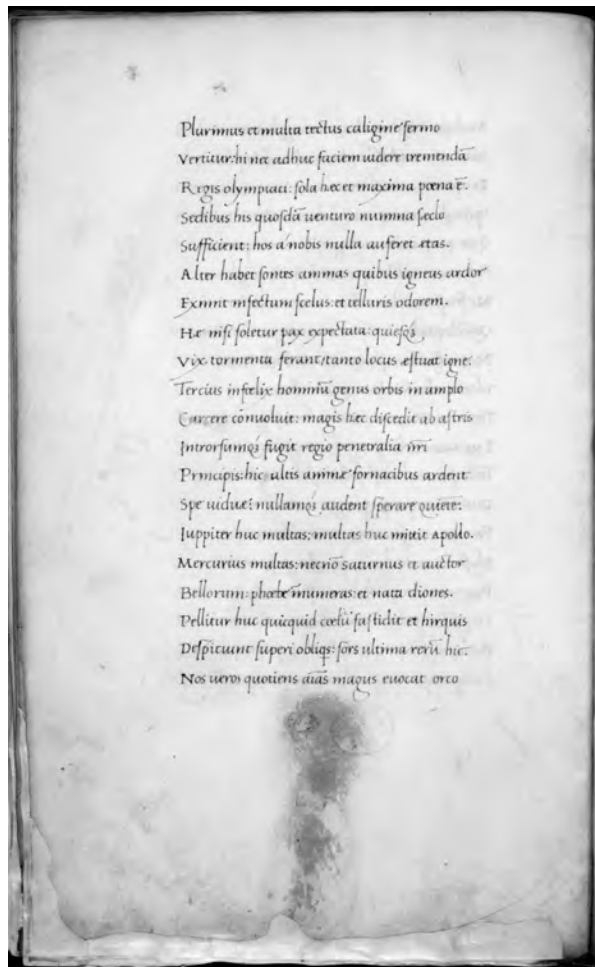 Plurimus et multa tectus caligine sermo
Vertitur: hi nec adhuc faciem uidere tremendā
Regis olympiaci: sola hæc et maxima pœna ē.
Sedibus his quosdā uenturo numina sęclo
Sufficient: hos a nobis nulla auferet ætas.
Alter habet sontes animas quibus igneus ardor
Eximit infectum scelus: et telluris odorem.
Hæ nisi soletur pax expectata: quiesqȝ
Vix tormenta ferant, tanto locus æstuat igne.
Tercius infœlix hominū genus orbis in amplo
Carcere cōuoluit: magis hæc discedit ab astris
Introrsumqȝ fugit regio penetralia nr̄i
Principis: hic ultis animæ fornacibus ardent
Spe uiduæ: nullamqȝ audent sperare quietē:
Iuppiter huc multas: multas huc mittit Apollo.
Mercurius multas: necnō saturnus et auctor
Bellorum: phœbe innumeras: et nata diones.
Pellitur huc quicquid cœlū fastidit et hirquis
Despiciunt superi obliqs: sors ultima rerū hic.
Nos uero quotiens aīas magus euocat orco